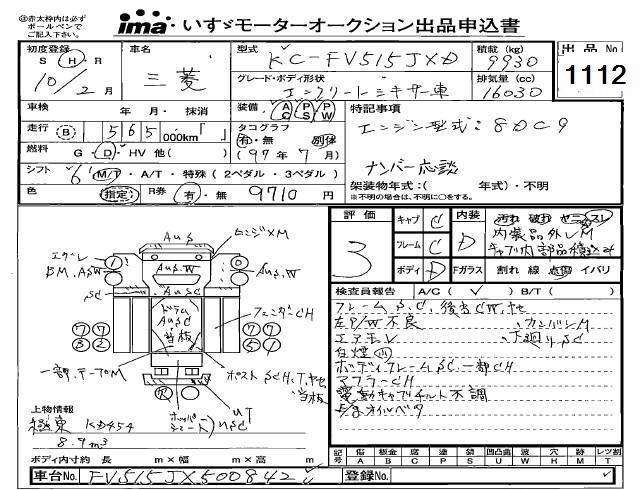 ㊟赤太枠内は必ず
ボールペンで
ご記入下さい。
ima いすゞモーターオークション出品申込書
初度登録 S・H・R 10/2月
車名 三菱
型式 KC-FV515JXD
積載(kg) 9930
出品No 1112
グレード・ボディ形状 コンクリートミキサー車
排気量(cc) 16030
車検 年 月・抹消
装備 AC PS PW
特記事項
走行 B 565000km「 」
タコグラフ 有・無 別体
エンジン型式:8DC9
燃料 G・D・HV 他( )
(97年7月)
ナンバー応談
シフト 6 M/T・A/T・特殊(2ペダル・3ペダル)
架装物年式:( 年式)・不明
※不明の場合は、不明に○をする。
色 指定 R券 有・無 9710円
評価 3
キャブ C
フレーム C
ボディ D
内装 D
汚れ 破れ ヤニ スレ
内装品外しM
キャブ内部品積込み
Fガラス 割れ 線 点傷 イバリ
検査員報告 A/C(✓) B/T( )
フレームSC、後方CW、ヤセ
左P/W不良 、カンバンM
エアモレ 、下廻りSC
白煙小
ボディフレームSC、一部CH
マフラーCH
電動キャブチルト不調
AUS
AUS.W
AUSC
ドラム
AUSC
当板
フェンダーCH
SC
BM、ASW
一部、テープM
ポストSCH、T、ヤセ
当板
UT
上物情報
極東 KD454
8.9m³
ボディ内寸約 長 m×幅 m×高 m
傷A 板金B 腐C 塗P 錆S 凹凸曲U 波W 穴H 欠M レツ割T
車台No. FV515JX500842
登録No.